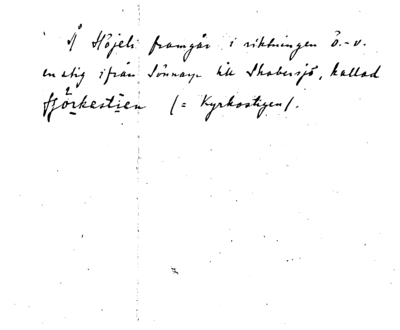 Å Höjeli framgår i riktningen ö.-v.
en stig ifrån Sönnarp till Skabersjö, kallad
fjörkestien (= Kyrkostigen).